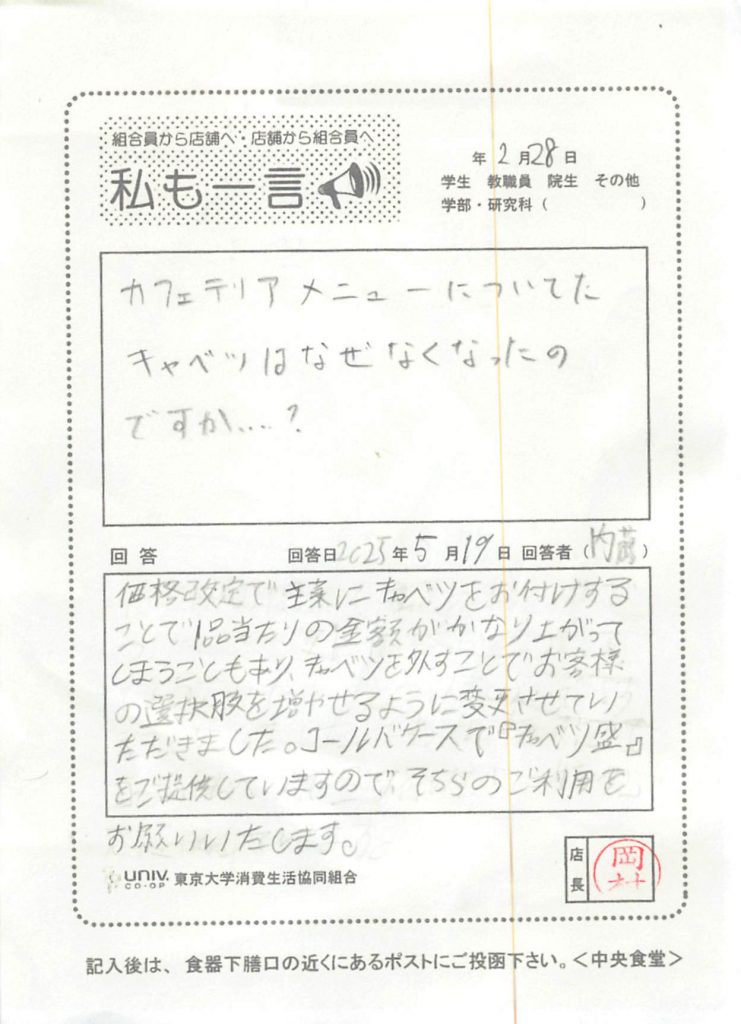 組合員から店舗へ・店舗から組合員へ
私も一言
年 2月28日
学生 教職員 院生 その他
学部・研究科（ ）
カフェテリアメニューについてた
キャベツはなぜなくなったの
ですか....?
回答 回答日2025年5月19日 回答者（内藤）
価格改定で主菜にキャベツをお付けする
ことで1品当たりの金額がかなり上がって
しまうこともあり、キャベツを外すことでお客様
の選択肢を増やせるように変更させてい
ただきました。コールドケースで『キャベツ盛』
をご提供していますので、そちらのご利用を
お願いいたします。
UNIV. CO-OP 東京大学消費生活協同組合
店長 岡村
記入後は、食器下膳口の近くにあるポストにご投函下さい。＜中央食堂＞